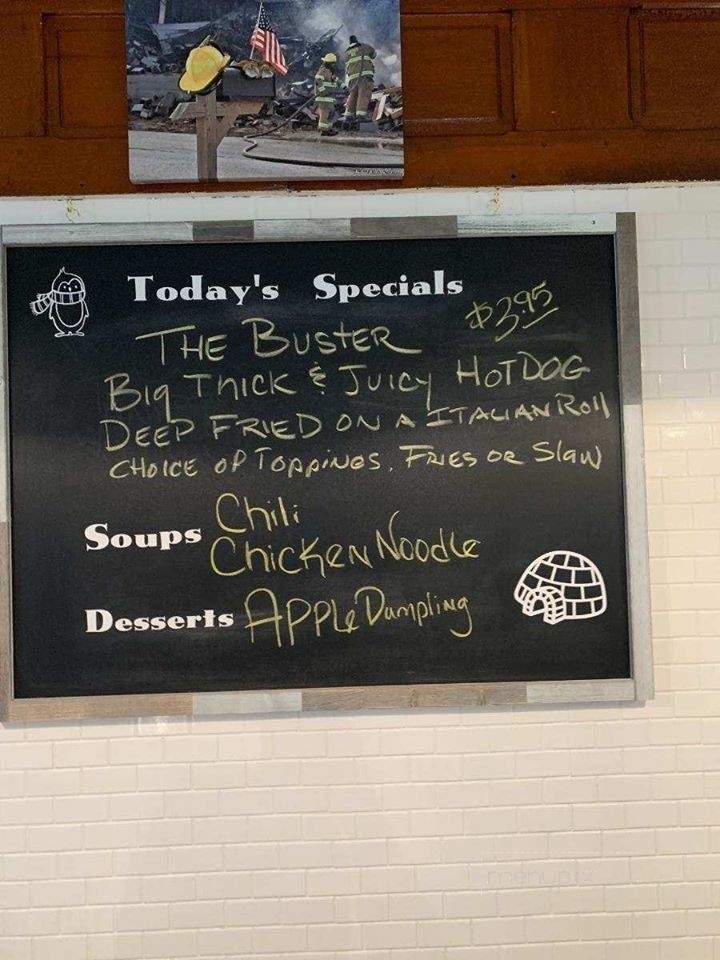 Today's Specials
THE BUSTER $3.95
Big Thick & Juicy HOTDOG
DEEP FRIED ON A ITALIAN Roll
CHOICE OF TOPPINGS, FRIES OR Slaw
Soups Chili
Chicken Noodle
Desserts Apple Dumpling
menupix